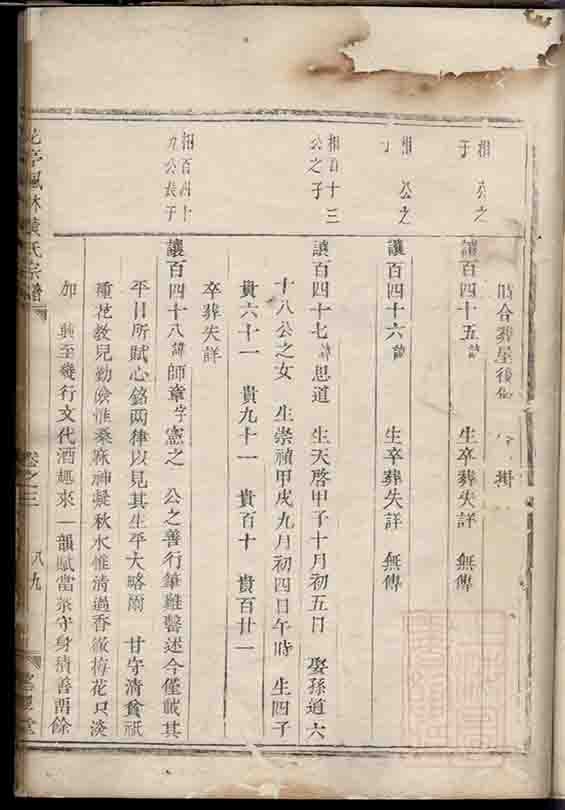 合葬屋後
相 公之
子
讓百四十五諱 生卒葬失詳 無傳
相 公之
子
讓百四十六諱 生卒葬失詳 無傳
相百十三
公之子
讓百四十七諱思道 生天啓甲子十月初五日 娶孫道六
十八公之女 生崇禎甲戌九月初四日午時 生四子
貴六十一 貴九十一 貴百十 貴百廿一
卒葬失詳
相百四十
九公長子
讓百四十八諱師章字憲之 公之善行筆難罄述今僅載其
平日所賦心銘兩律以見其生平大略爾 甘守清貧祇
種花教兒勤儉惟桑麻神凝秋水惟清過香徹梅花只淡
如 興至幾行文代酒 來一韻賦當茶守身積善酉餘
亭楓林黃氏宗譜
卷之三
八九
堂